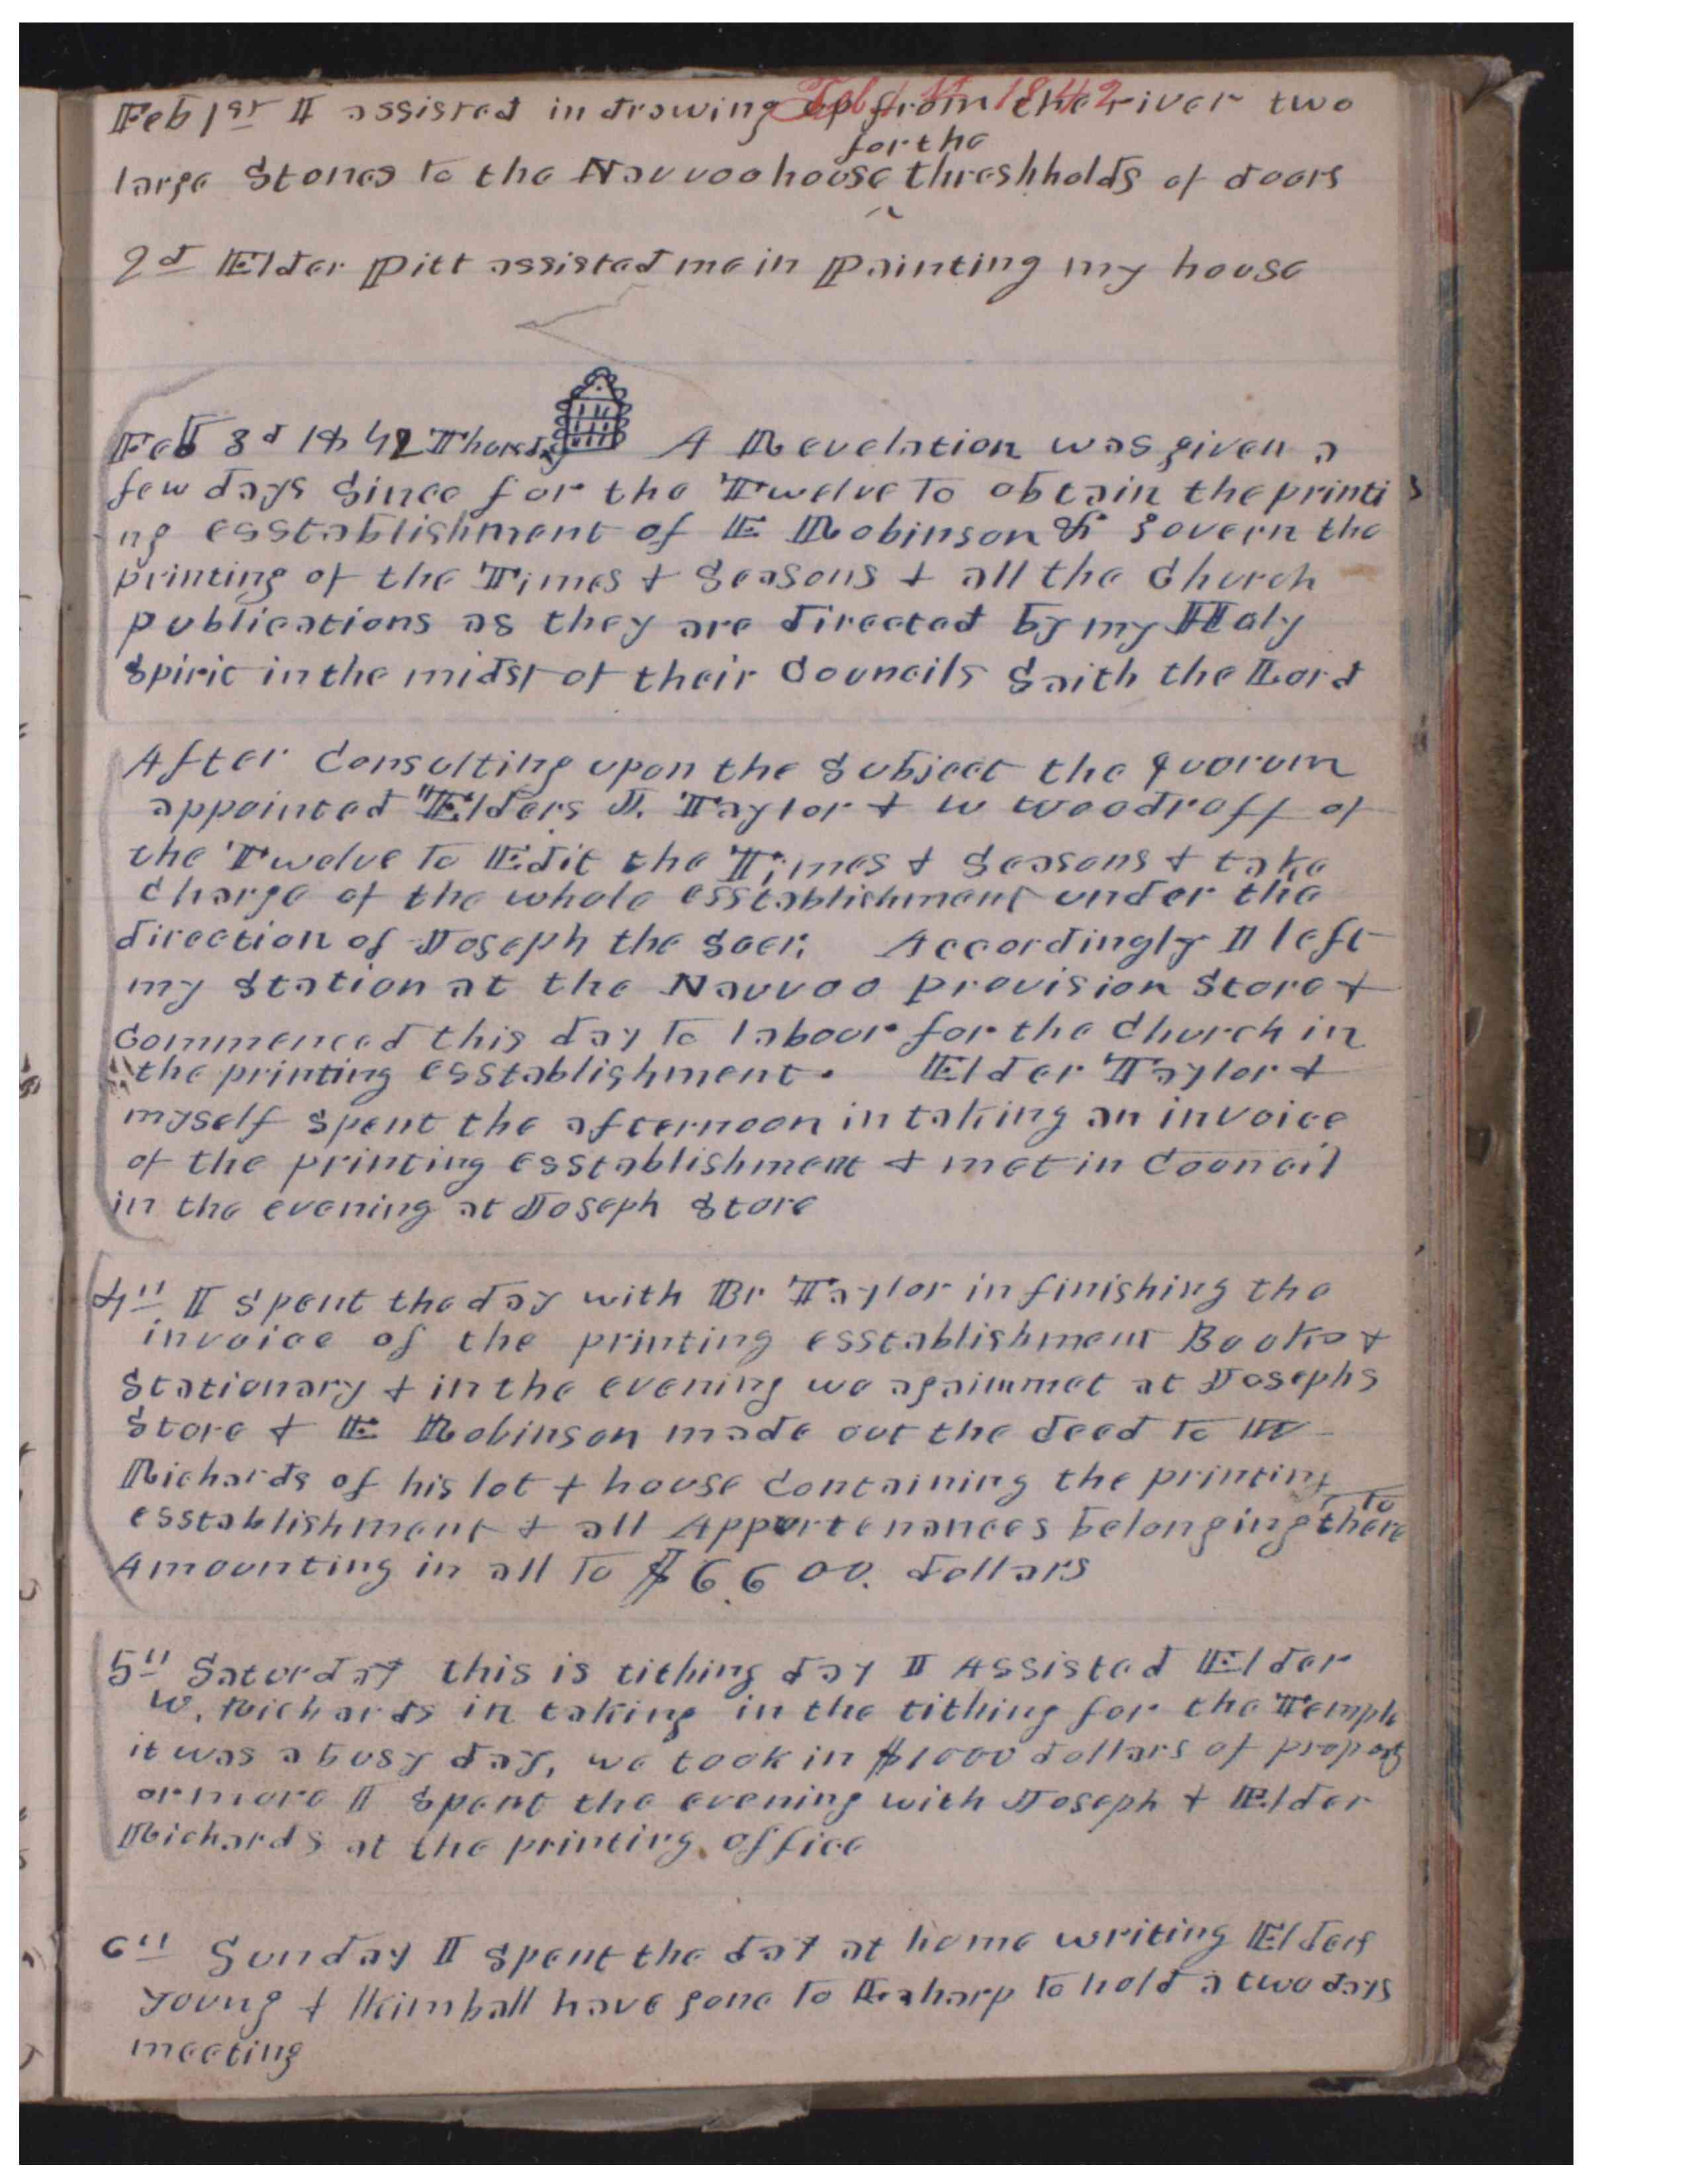 Feb 1st 1842
Feb 1st I assisted in drawing up from the river two
for the
large Stones to the Nauvoo house threshholds of doors
2d Elder Pitt assisted me in Painting my house
Feb 3d 1842 Thursday A Revelation was given a
few days since for the Twelve to obtain the printi
ng esstablishment of E Robinson & govern the
printing of the Times & Seasons & all the Church
publications as they are directed by my Holy
Spirit in the midst of their Councils Saith the Lord
After Consulting upon the Subject the quorum
appointed Elders J. Taylor & W Woodruff of
the Twelve to Edit the Times & Seasons & take
Charge of the whole esstablishment under the
direction of Joseph the Seer. Accordingly I left
my Station at the Nauvoo Provision Store &
Commenced this day to labour for the Church in
the printing esstablishment. Elder Taylor &
myself spent the afternoon in taking an invoice
of the printing esstablishment & met in Council
in the evening at Joseph Store
4th I spent the day with Br Taylor in finishing the
invoice of the printing esstablishment Books &
Stationary & in the evening we again met at Josephs
Store & E Robinson made out the deed to W
Richards of his lot & house Containing the printing
to
esstablishment & all Appurtenances belonging there
Amounting in all to $6600. dollars
5th Saturday this is tithing day I Assisted Elder
W. Richards in taking in the tithing for the Temple
it was a busy day, we took in $1000 dollars of property
or more I spent the evening with Joseph & Elder
Richards at the printing office
6th Sunday I spent the day at home writing Elders
Young & Kimball have gone to Laharp to hold a two days
meeting